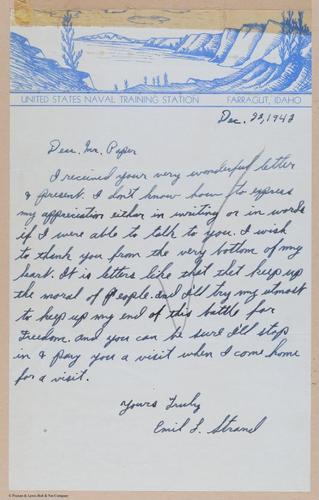 UNITED STATES NAVAL TRAINING STATION FARRAGUT, IDAHO
Dec. 23, 1942
Dear Mr. Peper
I received your very wonderful letter
& present. I don't know how to express
my appreciation either in writing or in words
if I were able to talk to you. I wish
to thank you from the very bottom of my
heart. It is letters like that that keep up
the moral of People. and I'll try my utmost
to keep up my end of this battle for
Freedom. and you can be sure I'll stop
in & pay you a visit when I come home
for a visit.
Yours Truly
Emil L. Strand